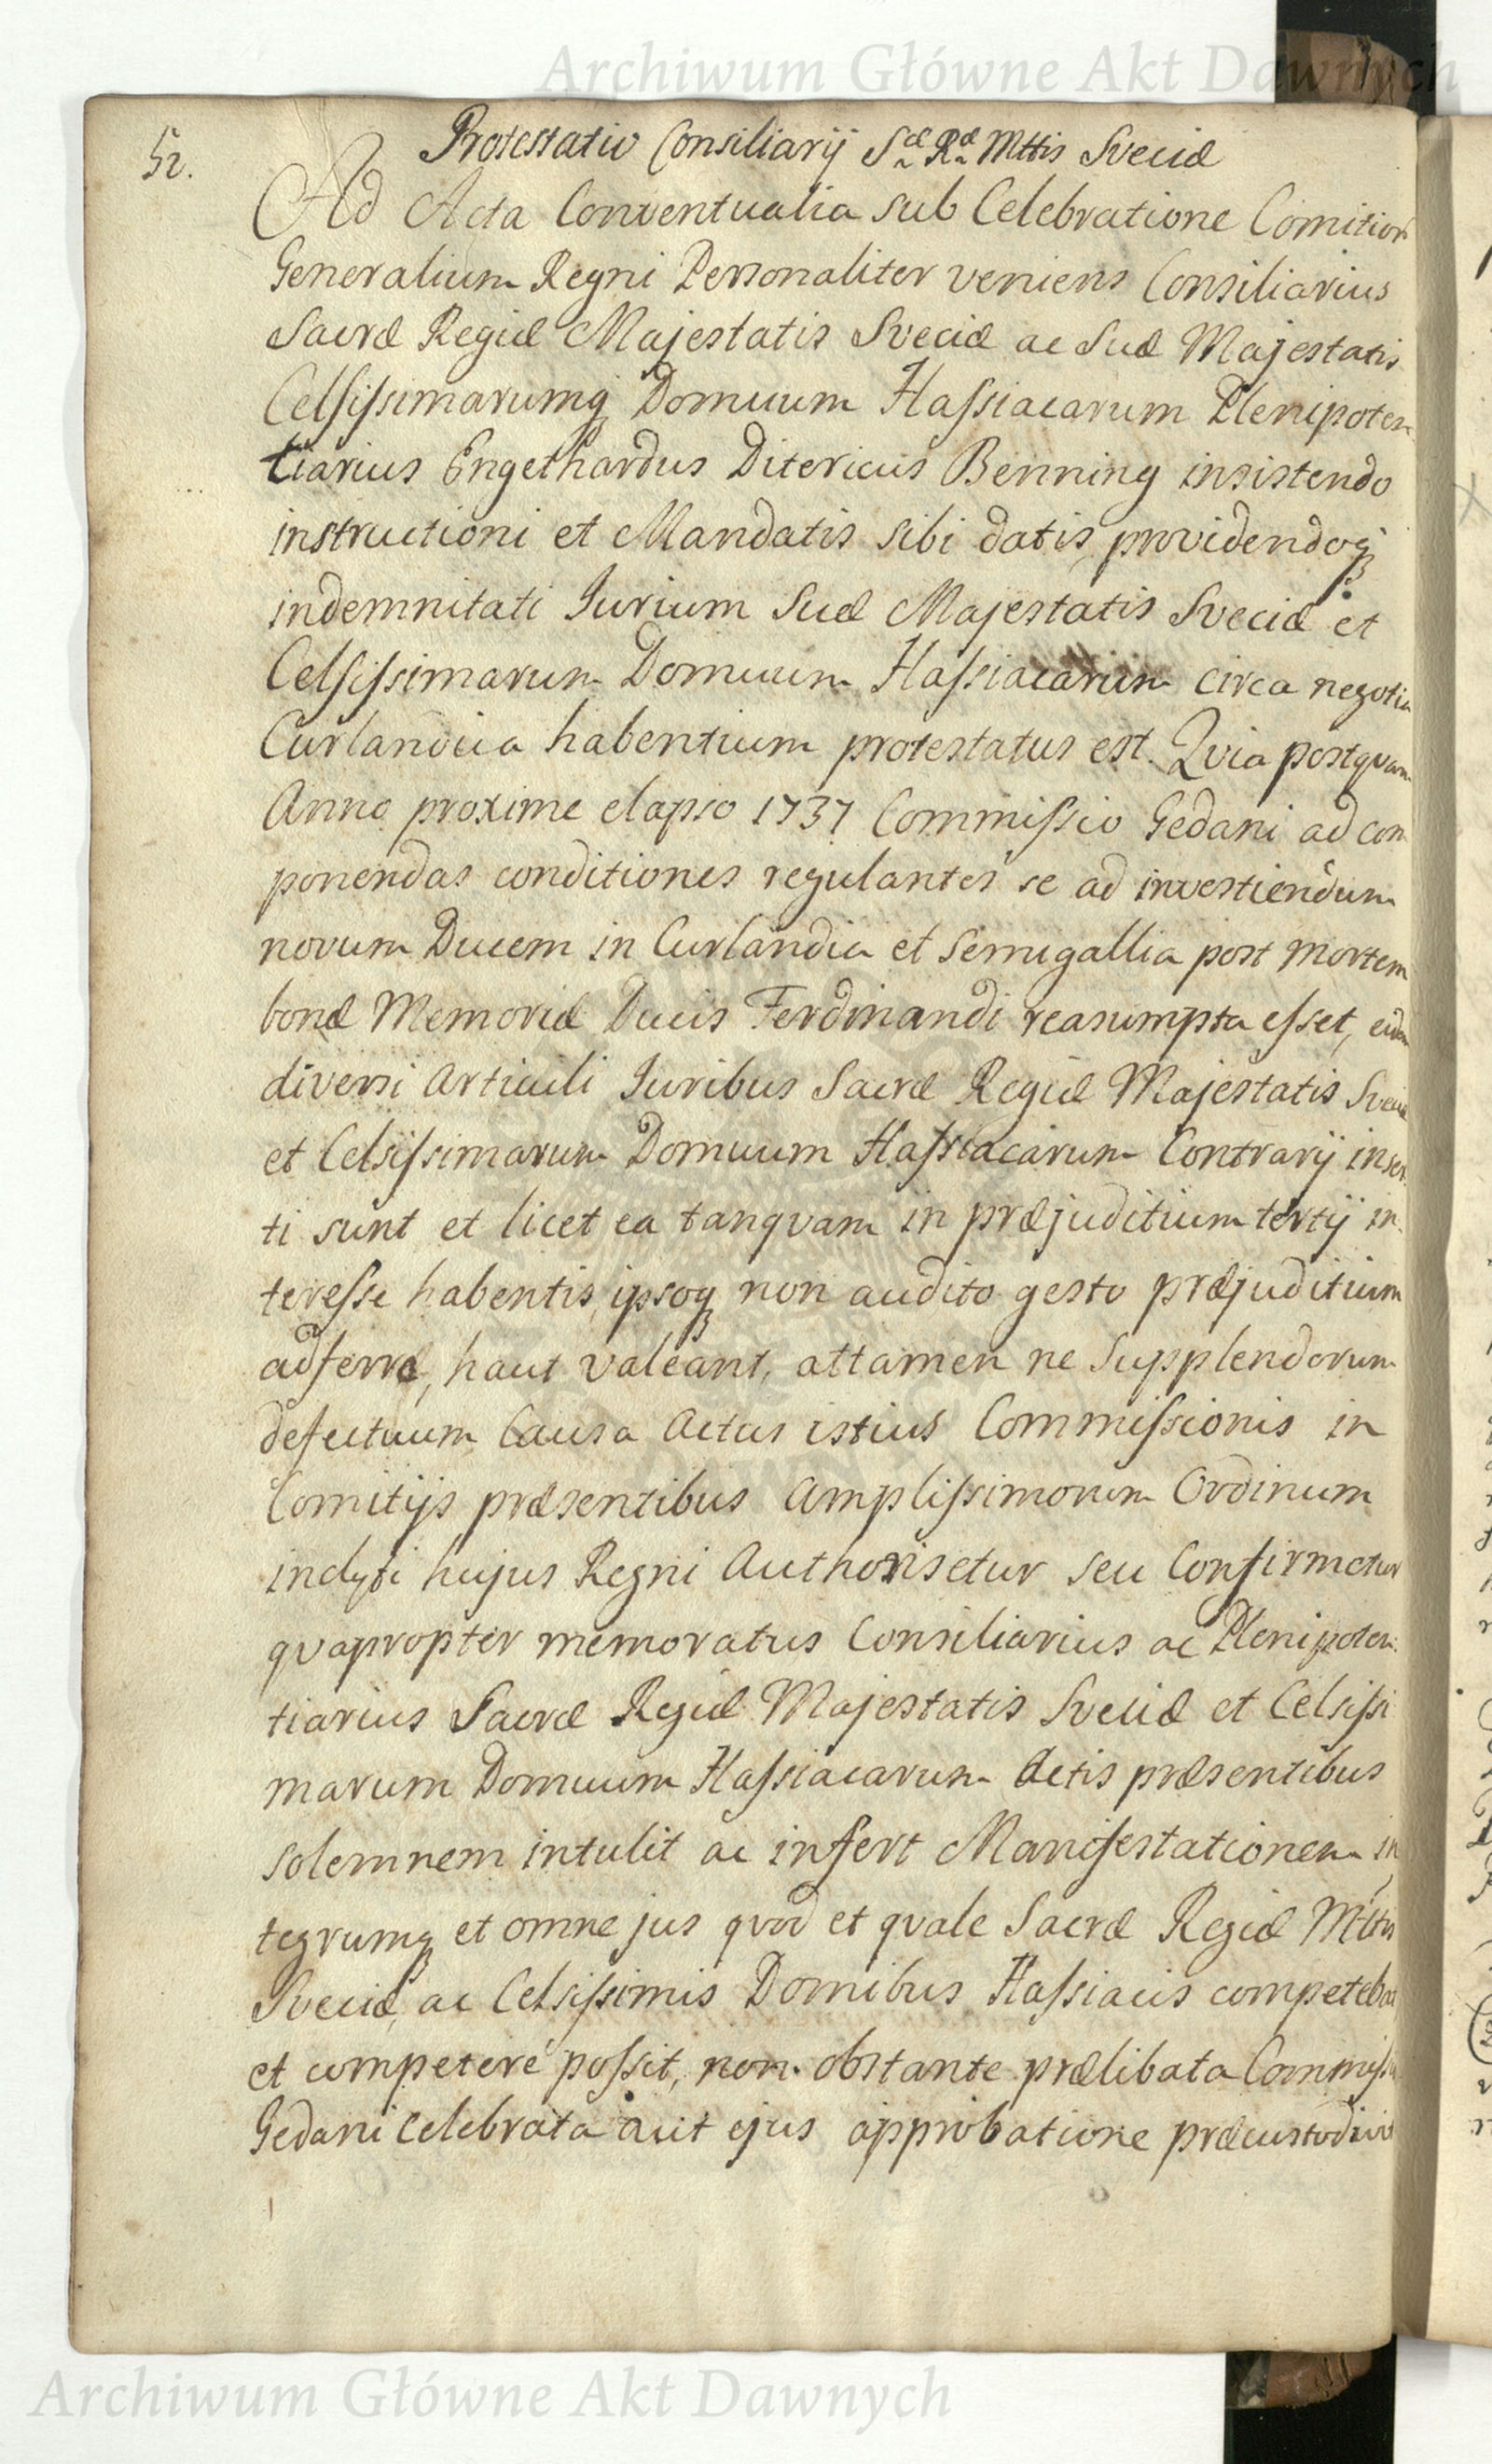 Archiwum Główne Akt Dawnych
52.
Protestatio Consiliarij Sæ Ræ Mttis Sveciæ
Ad Acta Conventualia sub Celebratione Comitior
Generalium Regni Personaliter veniens Consiliarius
Sacræ Regiæ Majestatis Sveciæ ac Suæ Majestatis
Celsissimarumq Domuum Hassiacarum Plenipoten
tiarius Engelhardus Ditericus Benning insistendo
instructioni et Mandatis sibi datis, providendoq
indemnitati Jurium Suæ Majestatis Sveciæ et
Celsissimarum Domuum Hassiacarum circa negotia
Curlandica habentium protestatus est. Qvia postqvam
Anno proxime elapso 1737 Commissio Gedani ad com
ponendas conditiones regulantes se ad investiendum
novum Ducem in Curlandia et Semigallia post mortem
bonæ Memoriæ Ducis Ferdinandi reasumpta esset,
diversi articuli Juribus Sacræ Regiæ Majestatis Sveciæ
et Celsissimarum Domuum Hassiacarum Contrarij inser
ti sunt et licet ea tanqvam in præjuditium tertij in
teresse habentis, ipsoq non audito gesto præjuditium
adferre, haut valeant, attamen ne supplendorum
defectuum Causa Actus istius Commissionis in
Comitijs præsentibus Amplissimorum Ordinum
inclyti hujus Regni Authorisetur seu Confirmetur
qvapropter memoratus Consiliarius ac Plenipoten
tiarius Sacræ Regiæ Majestatis Sveciæ et Celsissi
marum Domuum Hassiacarum Actis præsentibus
solemnem intulit ac infert Manifestationem in
tegrumq et omne jus qvod et qvale Sacræ Regiæ Mtti
Sveciæ, ac Celsissimis Domibus Hassiacis competebat
et competere possit, non obstante prælibata Commissio
Gedani Celebrata aut ejus approbatione præcustodivit
Archiwum Główne Akt Dawnych